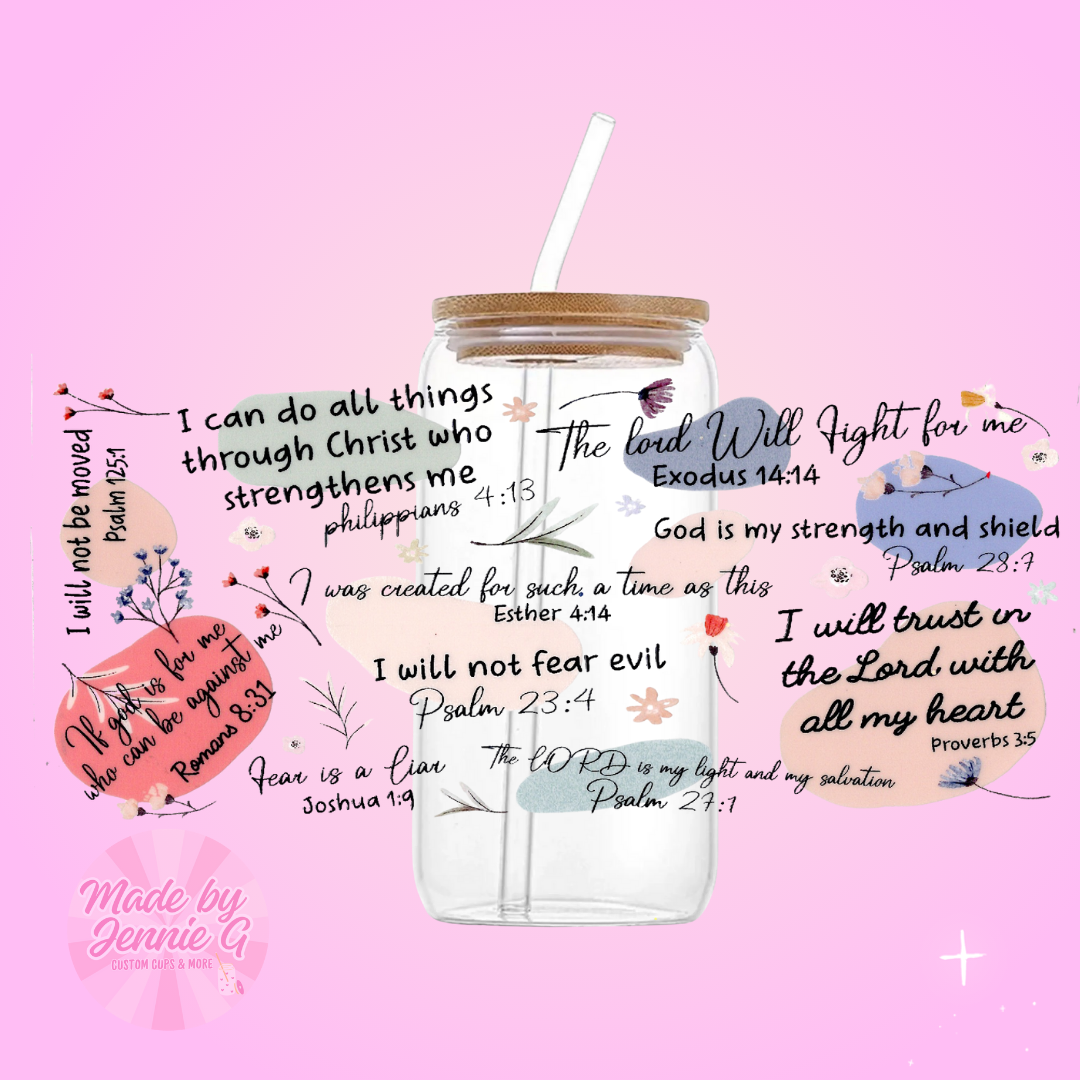 I will not be moved
Psalm 125:1
I can do all things
through Christ who
strengthens me
philippians 4:13
The lord Will Fight for me
Exodus 14:14
God is my strength and shield
Psalm 28:7
I was created for such a time as this
Esther 4:14
I will not fear evil
Psalm 23:4
I will trust in
the Lord with
all my heart
Proverbs 3:5
If god is for me
who can be against me
Romans 8:31
Fear is a liar
Joshua 1:9
The LORD is my light and my salvation
Psalm 27:1
Made by
Jennie G
CUSTOM CUPS & MORE